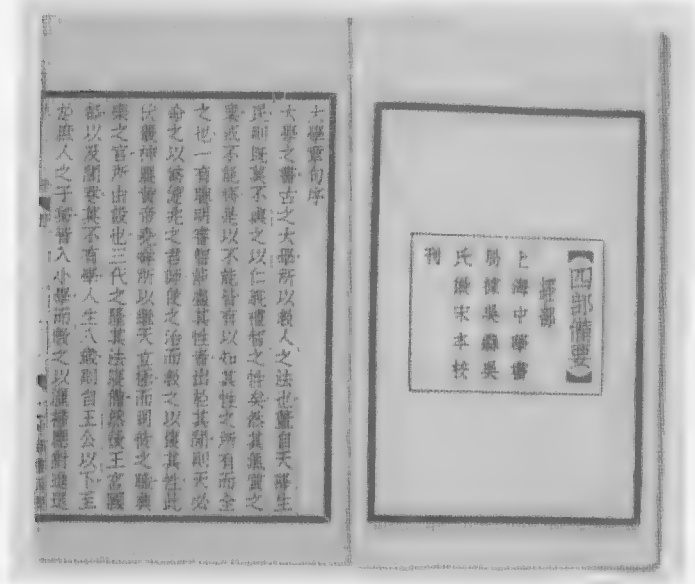 【四部備要】
經部
上海中華書
局據吳縣吳
氏倣宋本校
刊
大學章句序
大學之書古之大學所以教人之法也蓋自天降生
民則既莫不與之以仁義禮智之性矣然其氣質之
稟或不能齊是以不能皆有以知其性之所有而全
之也一有聰明睿智能盡其性者出於其閒則天必
命之以為億兆之君師使之治而教之以復其性此
伏羲神農黃帝堯舜所以繼天立極而司徒之職典
樂之官所由設也三代之隆其法寖備然後王宮國
都以及閭巷莫不有學人生八歲則自王公以下至
於庶人之子弟皆入小學而教之以灑掃應對進退